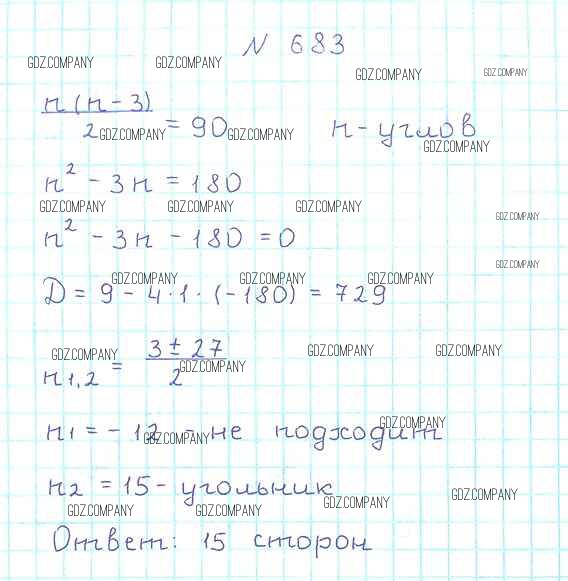 N 683
GDZ.COMPANY GDZ.COMPANY
GDZ.COMPANY GDZ.COMPANY
n(n-3)
2 = 90 n - углов
GDZ.COMPANY GDZ.COMPANY
GDZ.COMPANY
n² - 3n = 180
GDZ.COMPANY GDZ.COMPANY GDZ.COMPANY
GDZ.COMPANY
n² - 3n - 180 = 0
GDZ.COMPANY
GDZ.COMPANY GDZ.COMPANY GDZ.COMPANY
D = 9 - 4·1·(-180) = 729
3 ± 27
GDZ.COMPANY GDZ.COMPANY GDZ.COMPANY
n1,2 = 2
GDZ.COMPANY
GDZ.COMPANY
n1 = -12 - не подходит
GDZ.COMPANY
n2 = 15 - угольник
GDZ.COMPANY GDZ.COMPANY
GDZ.COMPANY GDZ.COMPANY
Ответ: 15 сторон